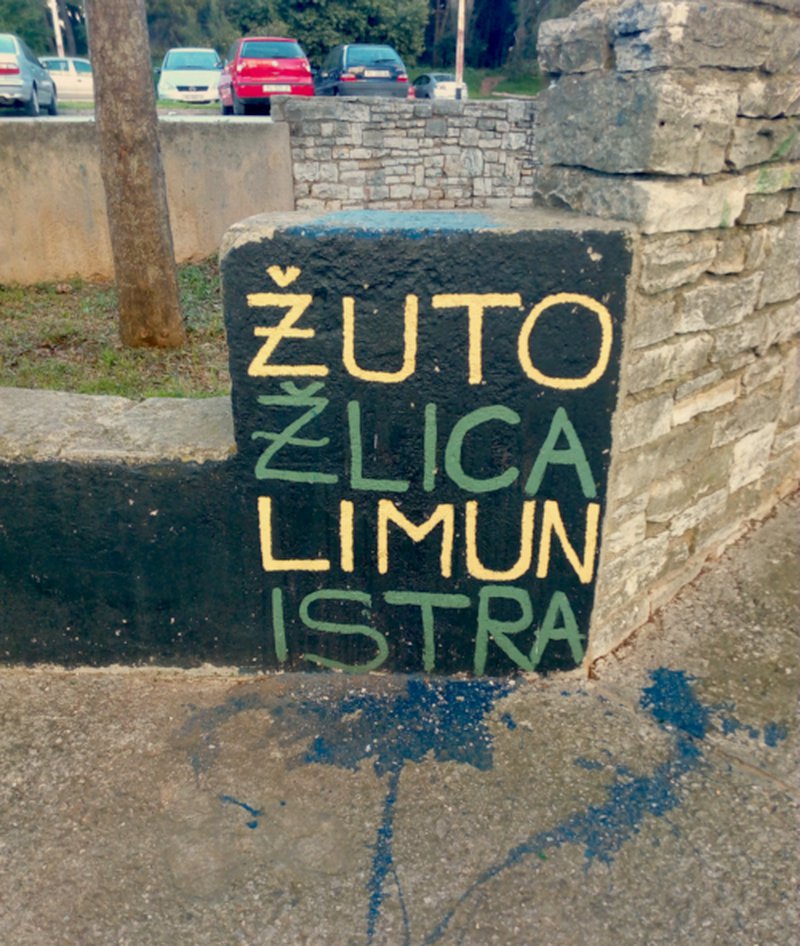 ŽUTO
ŽLICA
LIMUN
ISTRA